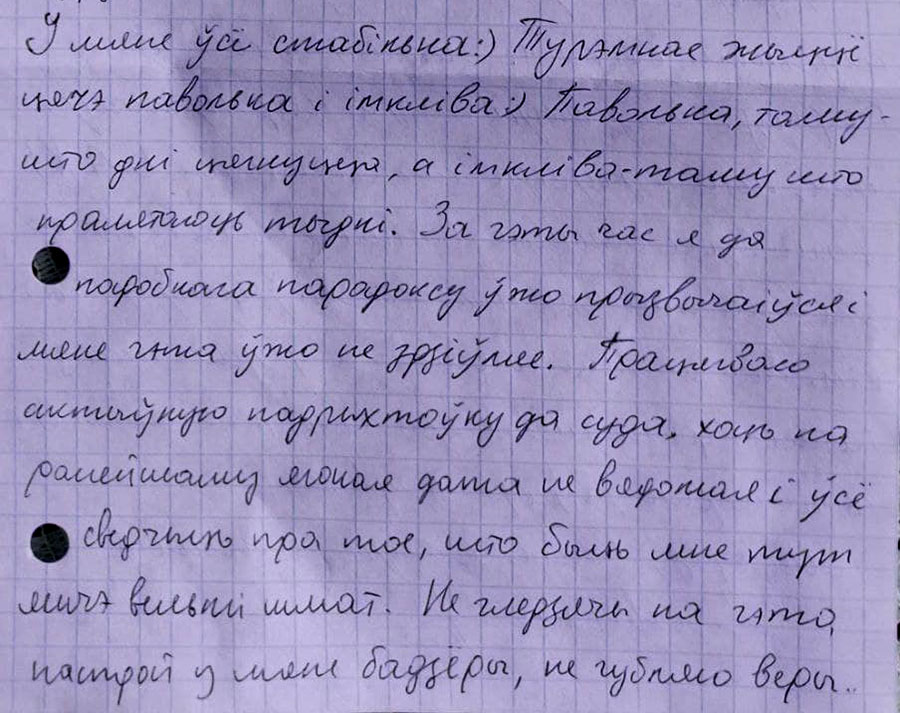 У мяне ўсё стабільна:) Турэмнае жыццё
цячэ павольна і імкліва:) Павольна, таму-
што дні цягнуцца, а імкліва-таму што
пралятаюць тыдні. За гэты час я да
падобнага парадоксу ўжо прызвычаіўся і
мяне гэта ўжо не здзіўляе. Працягваю
актыўную падрыхтоўку да суда, хоць па
ранейшаму ягоная дата не вядомая і ўсё
сведчыць пра тое, што быць мне тут
яшчэ вельмі шмат. Не гледзячы на гэта,
настрой у мяне бадзёры, не губляю веры..